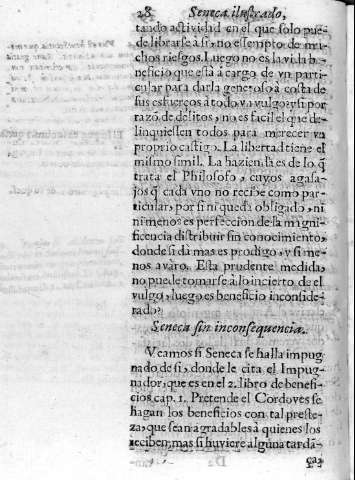 28 Seneca ilustrado,
tando actividad en el que solo pue-
de librarse à si, no essempto de mu-
chos riesgos. Luego no es la vida be-
neficio que està à cargo de vn parti-
cular para darla generoso à costa de
sus esfuerços à todo vn vulgo? si por
razõ de delitos, no es facil el que de-
linquiessen todos para merecer vn
proprio castigo. La libertad tiene el
mismo simil. La hazienda es de lo q̃
trata el Philosofo, cuyos agasa-
jos q̃ cada vno no recibe como par-
ticular, por si ni queda obligado, ni
ni menos es perfeccion de la magni-
ficencia distribuir sin conocimiento,
donde si dà mas es prodigo, y si me-
nos avaro. Esta prudente medida,
no puede tomarse à lo incierto de el
vulgo, luego es beneficio inconside-
rado?
Seneca sin inconsequencia.
Veamos si Seneca se halla impug
nado de si, donde le cita el Impug-
nador, que es en el 2. libro de benefi-
cios cap. 1. Pretende el Cordoves se
hagan los beneficios con tal preste-
za, que sean agradables à quienes los
reciben, mas si huviere algũna tardã-
ça,